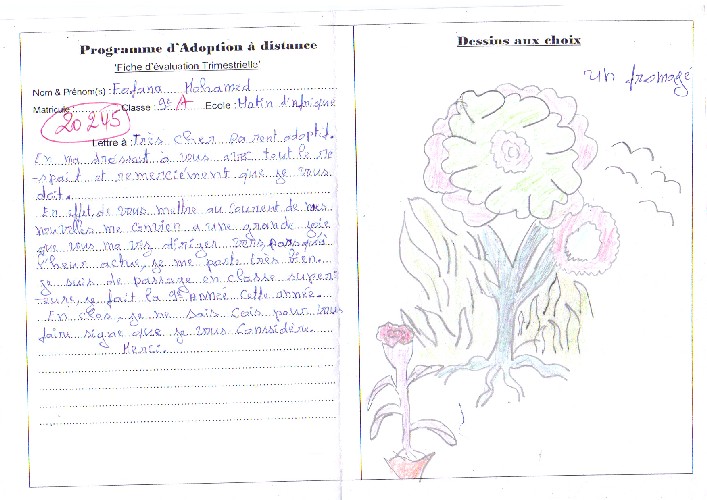 Programme d'Adoption à distance
'Fiche d'évaluation Trimestrielle'
Nom & Prénom(s) : Fofana Mohamed
Matricule : 20 245 Classe : 9e A Ecole : Matin d'afrique
Lettre à : Très cher Parent adoptif.
En ma dressant à vous avec tout le re-
spait et remerciement que je vous
doit.
En effet de vous mettre au courant de mes
nouvelles me a une grande joie
que vous diriger vers,
l'heur actue, je me porte très bien.
Je suis de passage en classe super-
ieure, je fait la 9e Année cette année.
En clos, je ne sais pour vous
faire signe que je vous Considère.
Merci.
Dessins aux choix
un fromagé